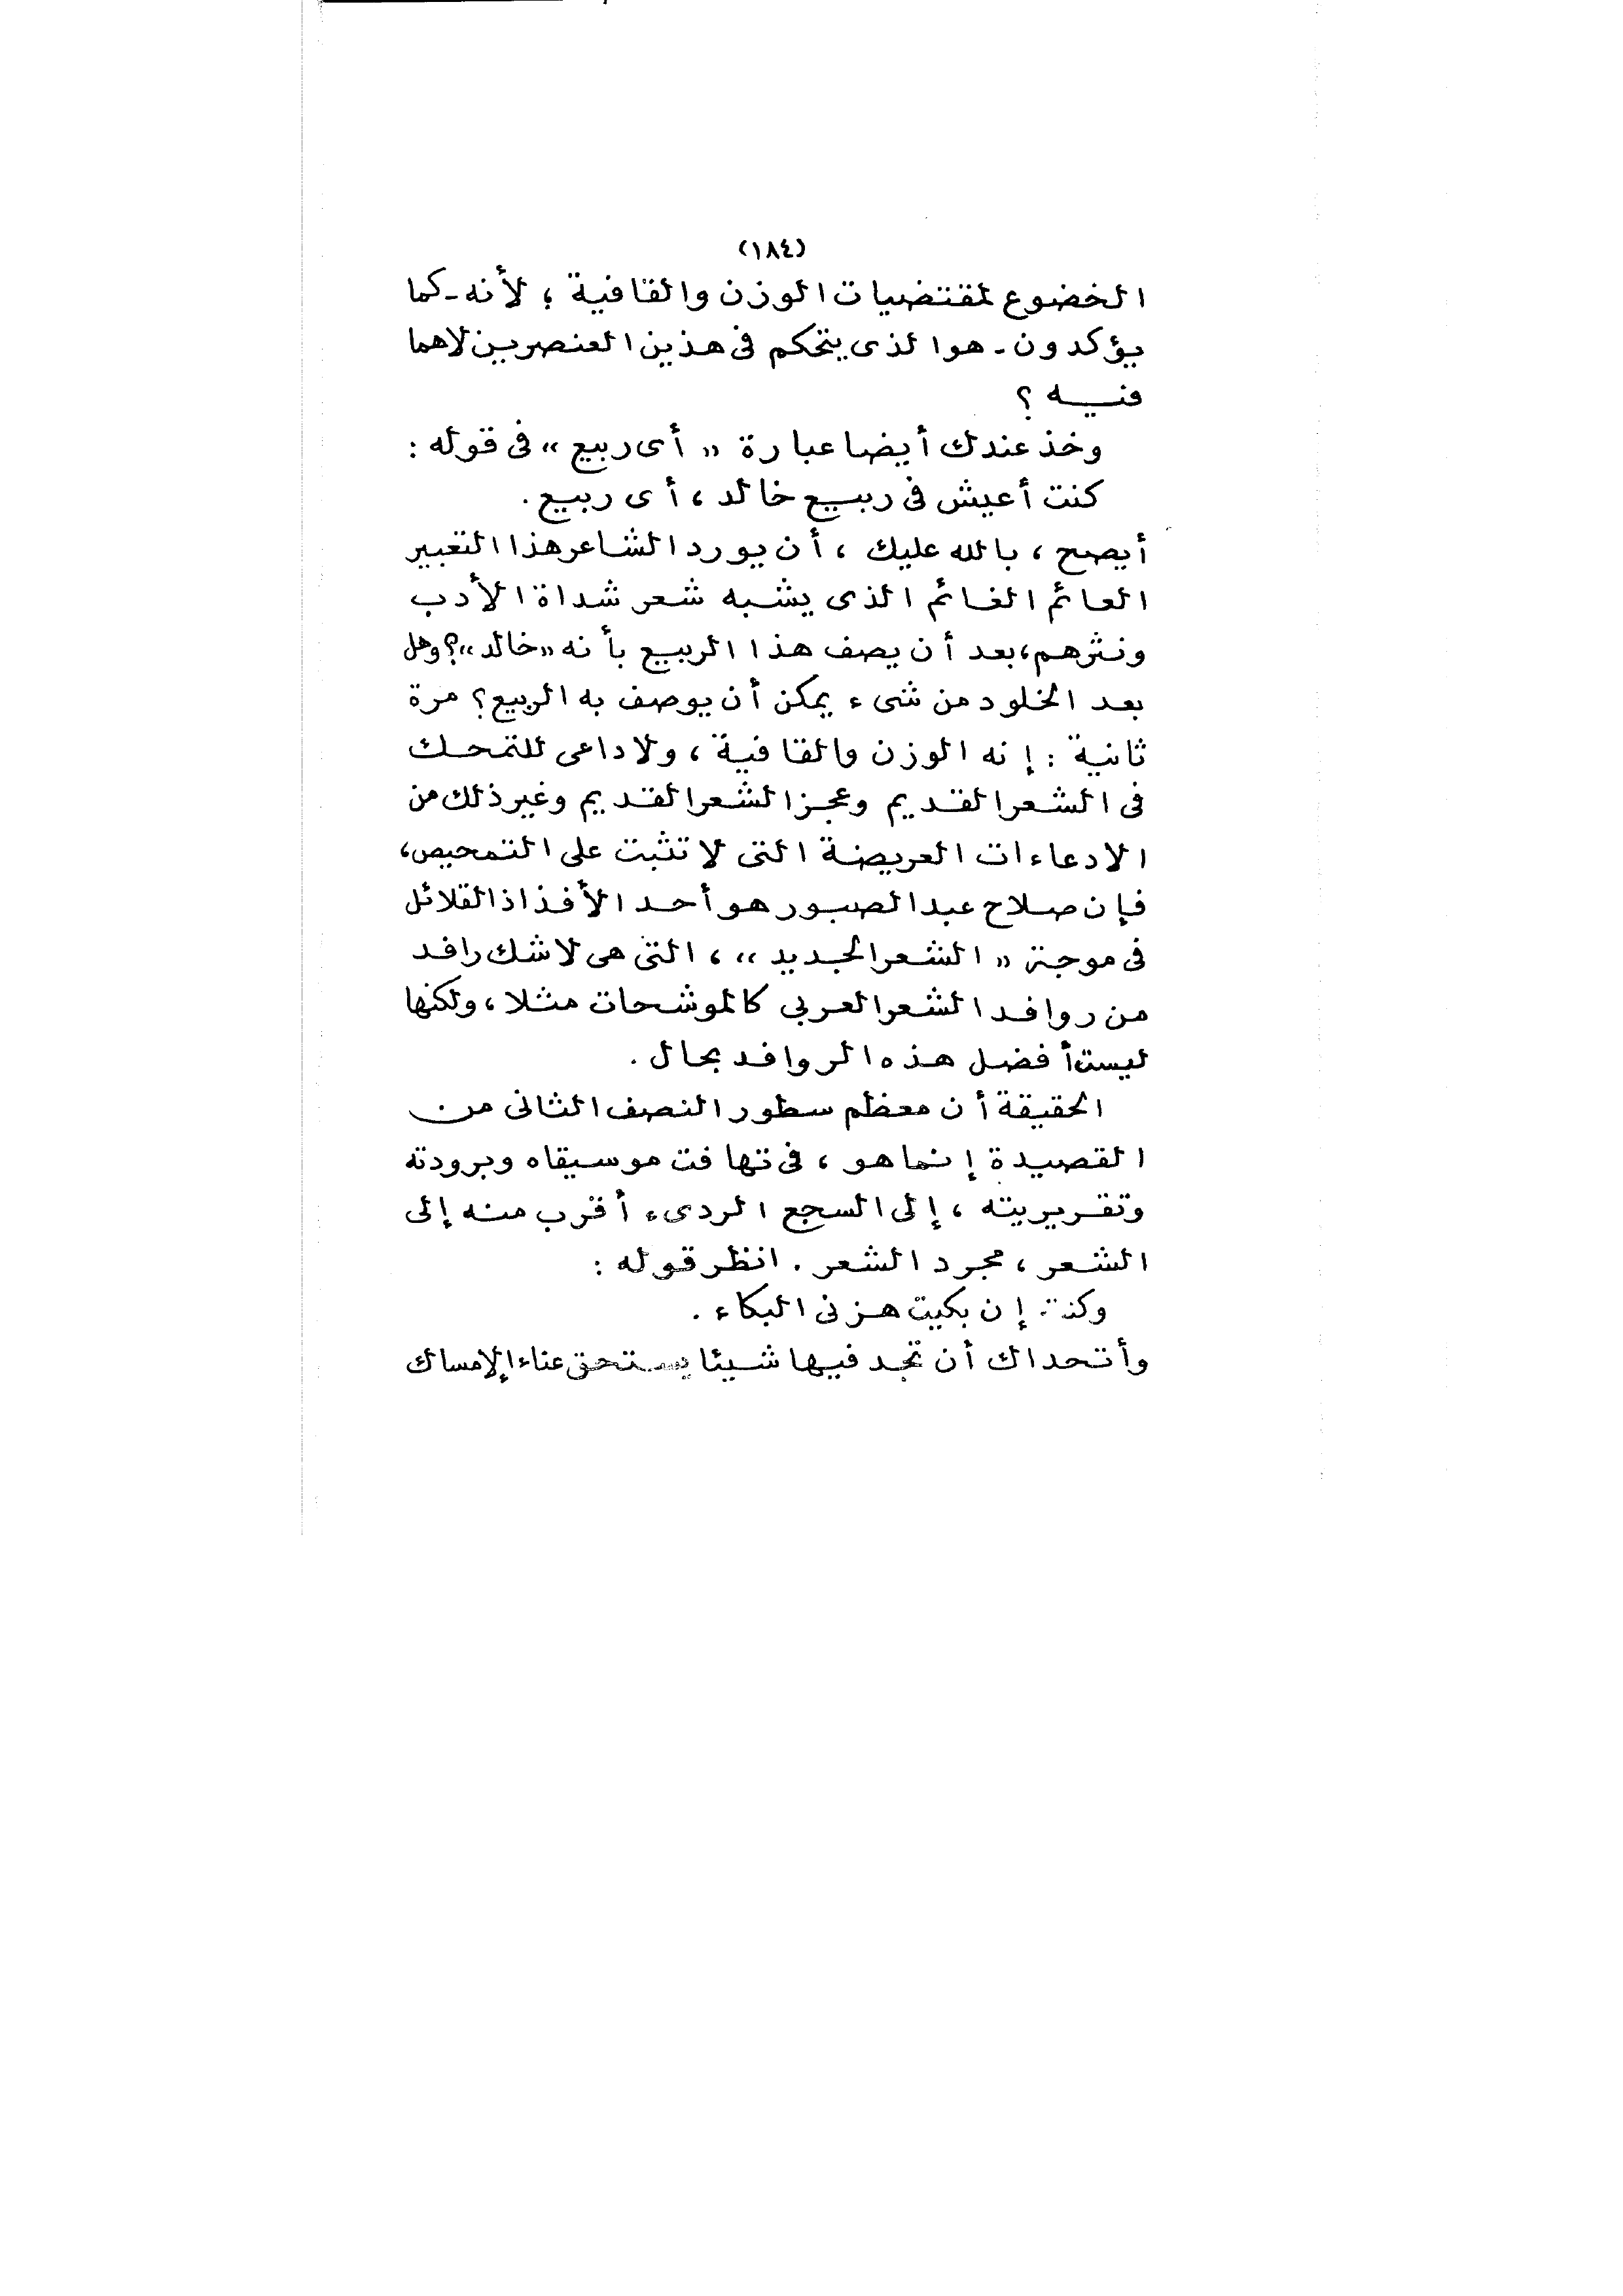 (١٨٤)
الخضوع لمقتضيات الوزن والقافية ؛ لأنه ـ كما
يؤكدون ـ هو الذى يتحكم فى هذين العنصرين لاهما
فيه ؟
وخذ عندك أيضا عبارة « أى ربيع » فى قوله :
كنت أعيش فى ربيع خالد ، أى ربيع .
أيصح ، بالله عليك ، أن يورد الشاعر هذا التعبير
العائم الغائم الذى يشبه شعر شداة الأدب
ونثرهم، بعد أن يصف هذا الربيع بأنه «خالد»؟ وهل
بعد الخلود من شىء يمكن أن يوصف به الربيع؟ مرة
ثانية : إنه الوزن والقافية ، ولا داعى للتمحك
فى الشعر القديم وعجز الشعر القديم وغير ذلك من
الادعاءات العريضة التى لا تثبت على التمحيص،
فإن صلاح عبد الصبور هو أحد الأفذاذ القلائل
فى موجة « الشعر الجديد » ، التى هى لا شك رافد
من روافد الشعر العربى كالموشحات مثلا ، ولكنها
ليست أفضل هذه الروافد بحال .
الحقيقة أن معظم سطور النصف الثانى من
القصيدة إنما هو ، فى تهافت موسيقاه وبرودته
وتقريريته ، إلى السجع الردىء أقرب منه إلى
الشعر ، مجرد الشعر . انظر قوله :
وكنت إن بكيت هزنى البكاء .
وأتحداك أن تجد فيها شيئا يستحق عناء الإمساك